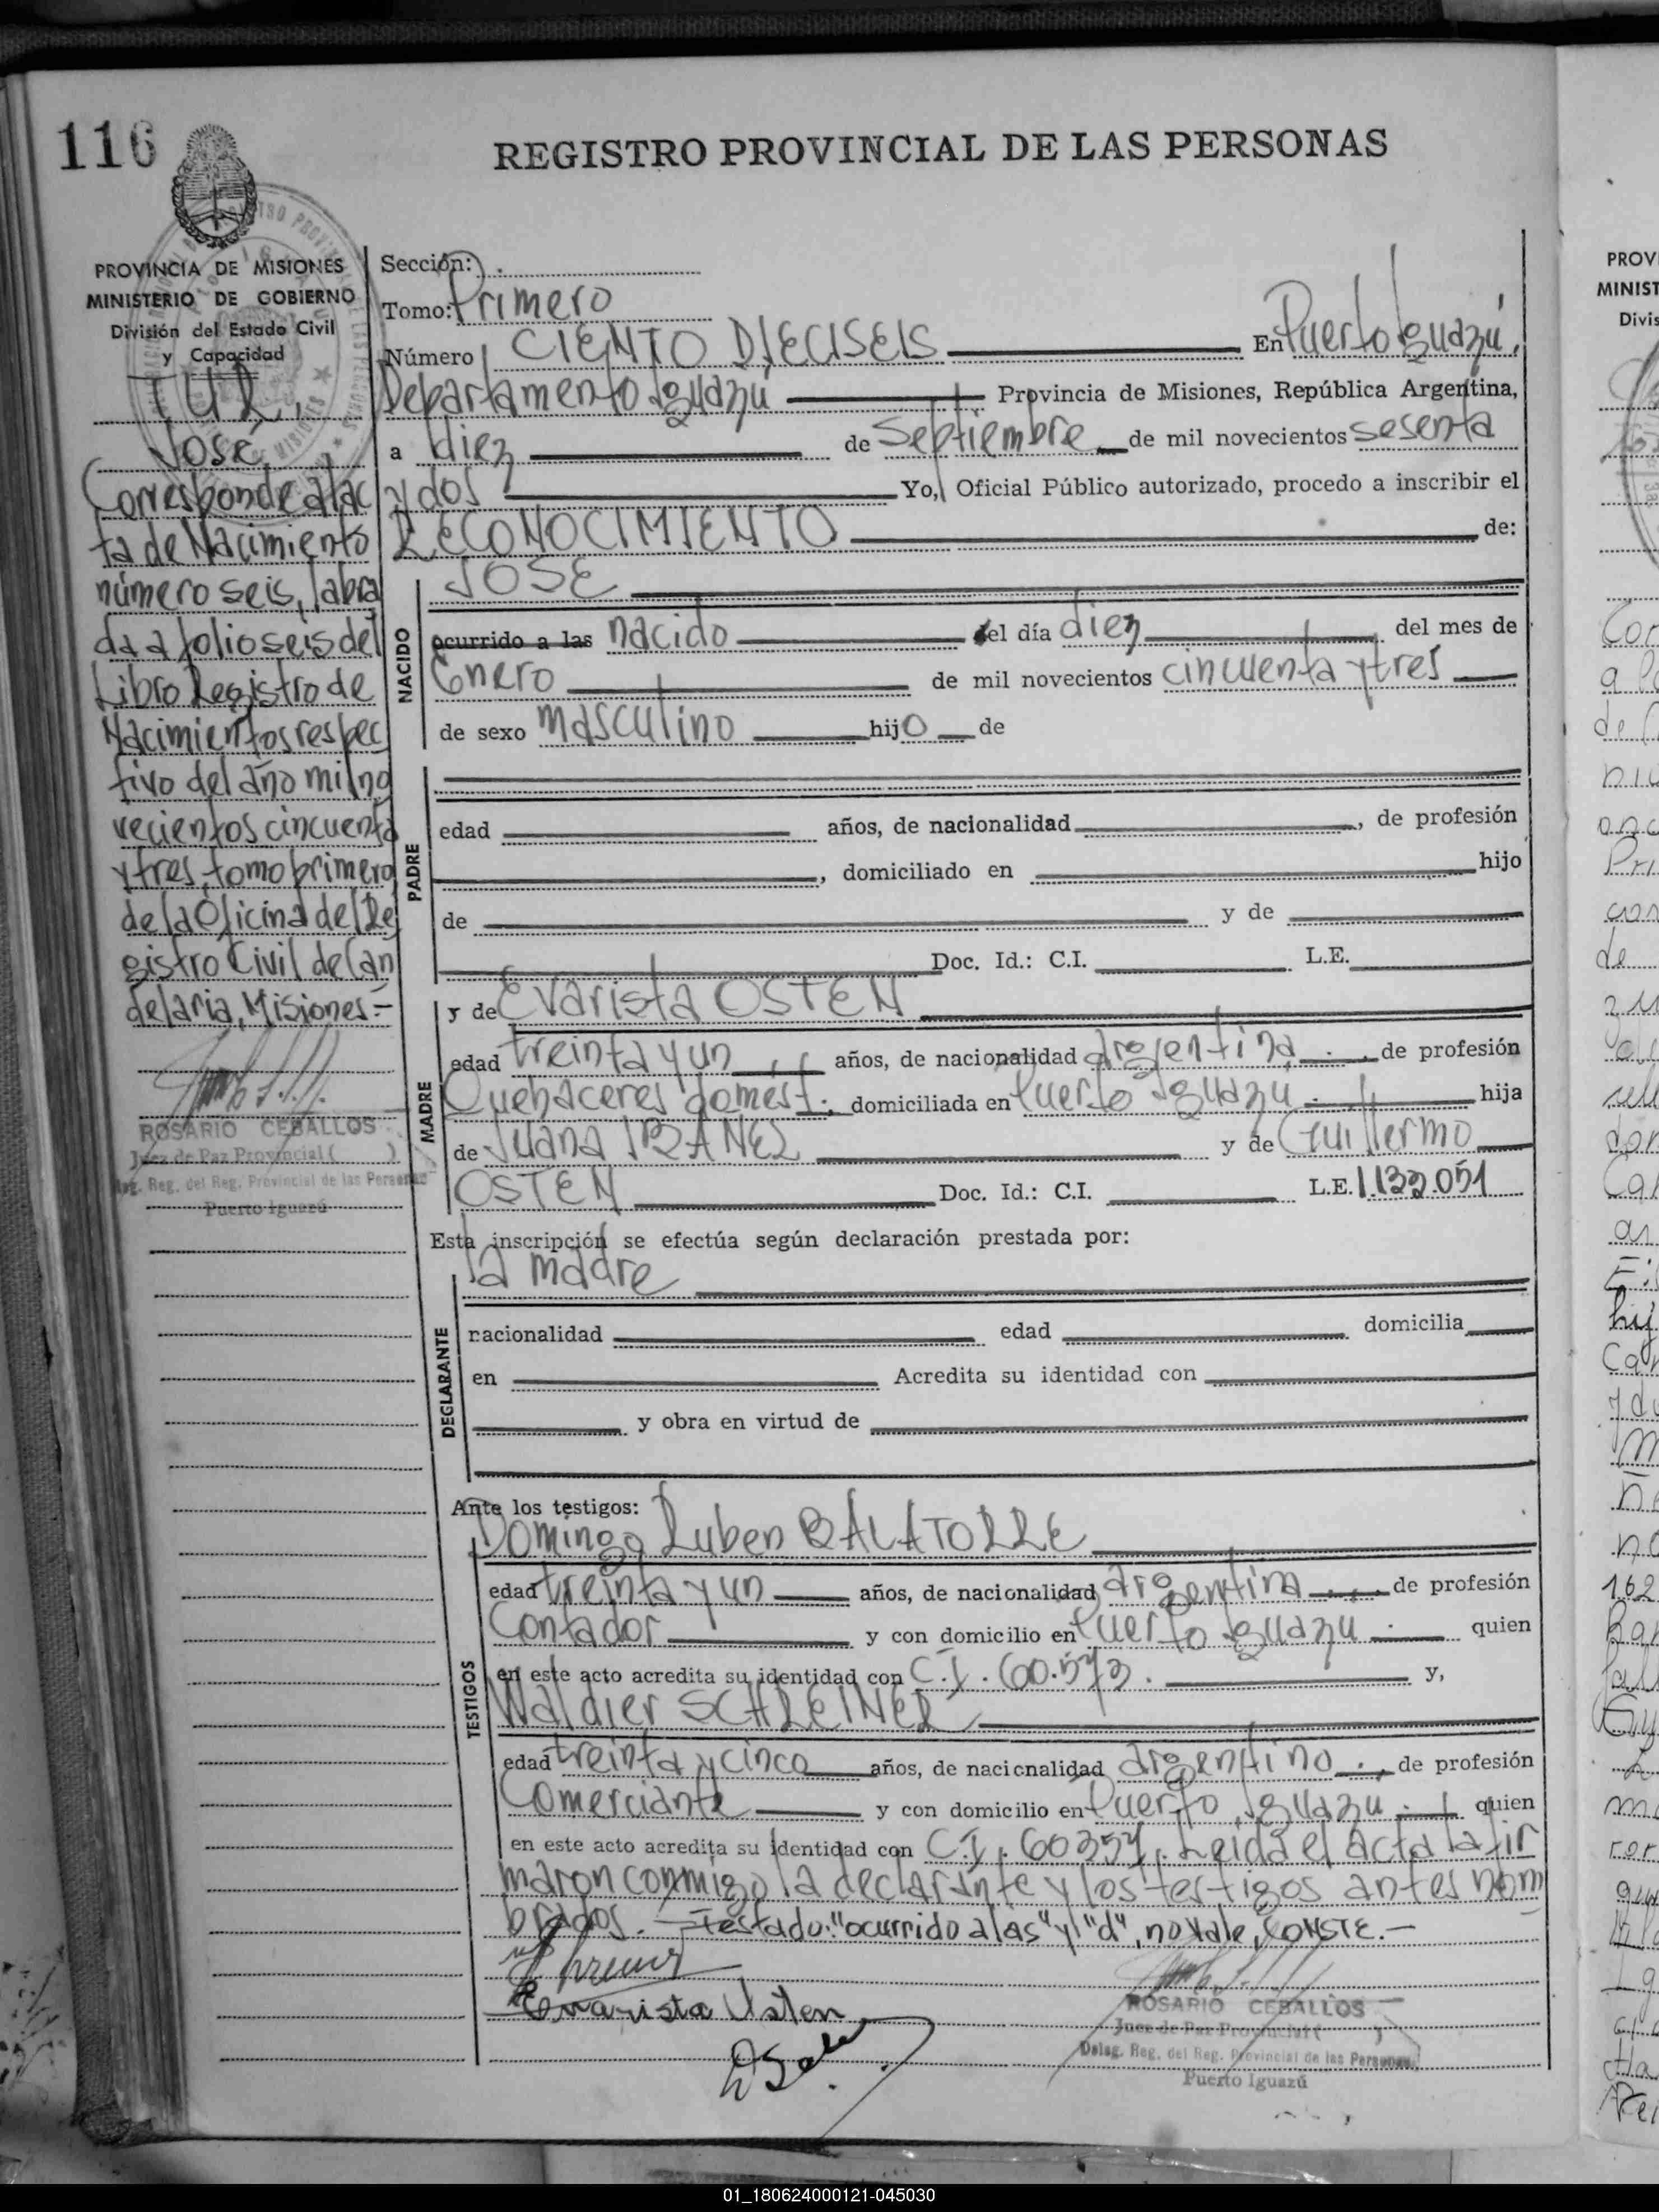 116
REGISTRO PROVINCIAL DE LAS PERSONAS
PROVINCIA DE MISIONES
MINISTERIO DE GOBIERNO
División del Estado Civil
y Capacidad
José
Corresponde al ac
ta de Nacimiento
número seis, labra
da a folio seis del
Libro Registro de
Nacimientos respec
tivo del año mil no
vecientos cincuenta
y tres, tomo primero
de la Oficina del Re
gistro Civil de Can
delaria, Misiones.=
ROSARIO CEBALLOS
Juez de Paz Provincial ( )
Reg. del Reg. Provincial de las Personas
Puerto Iguazú
Sección:
Tomo: Primero
Número CIENTO DIECISEIS En Puerto Iguazú,
Departamento Iguazú Provincia de Misiones, República Argentina,
a diez de Septiembre de mil novecientos sesenta
y dos Yo, Oficial Público autorizado, procedo a inscribir el
RECONOCIMIENTO de:
JOSE
NACIDO
ocurrido a las nacido el día diez del mes de
Enero de mil novecientos cincuenta y tres
de sexo masculino hijo de
PADRE
edad años, de nacionalidad , de profesión
, domiciliado en hijo
de y de
Doc. Id.: C.I. L.E.
MADRE
y de Evarista OSTEN
edad treinta y un años, de nacionalidad argentina de profesión
Quehaceres domést. domiciliada en Puerto Iguazú hija
de Juana IBAÑEZ y de Guillermo
OSTEN Doc. Id.: C.I. L.E. 1.132.051
Esta inscripción se efectúa según declaración prestada por:
la madre
DECLARANTE
nacionalidad edad domicilia
en Acredita su identidad con
y obra en virtud de
Ante los testigos:
TESTIGOS
Domingo Ruben BALATORRE
edad treinta y un años, de nacionalidad argentina de profesión
Contador y con domicilio en Puerto Iguazú quien
en este acto acredita su identidad con C.I. 60.573. y,
Waldier SCHREINER
edad treinta y cinco años, de nacionalidad argentino , de profesión
Comerciante y con domicilio en Puerto Iguazú quien
en este acto acredita su identidad con C.I. 60357. Leída el acta la fir
maron conmigo la declarante y los testigos antes nom
brados. Testado: "ocurrido a las" y "d", no vale, CONSTE.-
Evarista Usten
ROSARIO CEBALLOS
Juez de Paz Provincial ( )
Deleg. Reg. del Reg. Provincial de las Personas
Puerto Iguazú
01_180624000121-045030